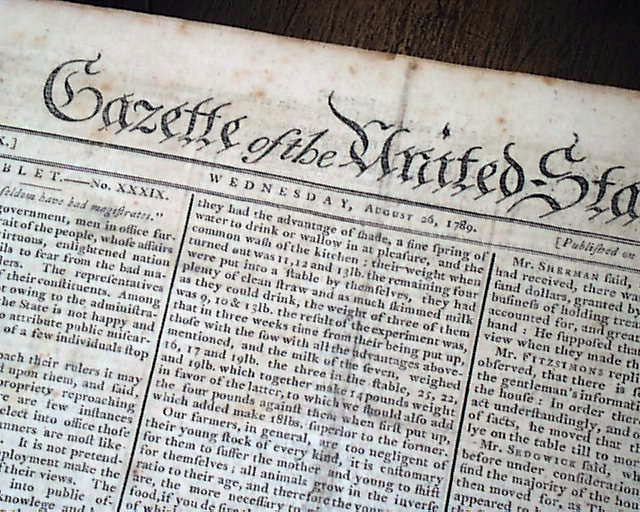 Gazette of the United Sta
X.]
WEDNESDAY, AUGUST 26, 1789.
[Published on
BLET.—No. XXXIX.
seldom have bad magistrates."
government, men in office fur-
rit of the people, whose affairs
virtuous, enlightened nation
ils to fear from the bad ma-
lers. The representatives
f their constituents. Among
t owing to the administra-
the State is not happy and
o attribute public miscar-
of a few individual, stop
oach their rulers it may
up them, and said,
propriety reproaching
re are few instances
elect into office those
anners are most like
It is not pretend
ployment make the
f their views. The
into public of-
knowledge and
they had the advantage of shade, a fine spring of
water to drink or wallow in at pleasure, and the
common wash of the kitchen: their weight when
turned out was 11, 12 and 13lb. the remaining four
were put into a stable by themselves, they had
plenty of clean straw and as much skimmed milk
as they could drink, the weight of three of them
was 9, 10 & 13lb. the result of the experiment was,
that in three weeks time from their being put up,
those with the sow with all the advantages above-
mentioned, and the milk of the seven, weighed
16, 17 and 19lb. the three in the stable, 25, 22
and 19lb. which together make 14 pounds weight
in favor of the latter, to which we should also add
the four pounds against them when first put up,
which added make 18lbs. superior to the former.
Our farmers, in general, are too negligent of
their young stock of every kind, it is customary
for them to suffer the mother and young to shift
for themselves; all animals grow in the inverse
ratio to their age, and therefore the younger they
are, the more necessary to give them
food, if you desire
of which
Mr. SHERMAN said,
had received, there was
sand dollars, granted by
business of holding trea
accounted for, and grea
hand: He supposed
view when they made th
Mr. FITZSIMONS repli
observed, that there is
the gentleman's inform
the house: In order the
act understandingly, and
of facts, he moved that
lye on the table till to mor
Mr. SEDGWICK said, wh
before under consideratio
find the majority of the hou
then moved for, as Th
appeared to